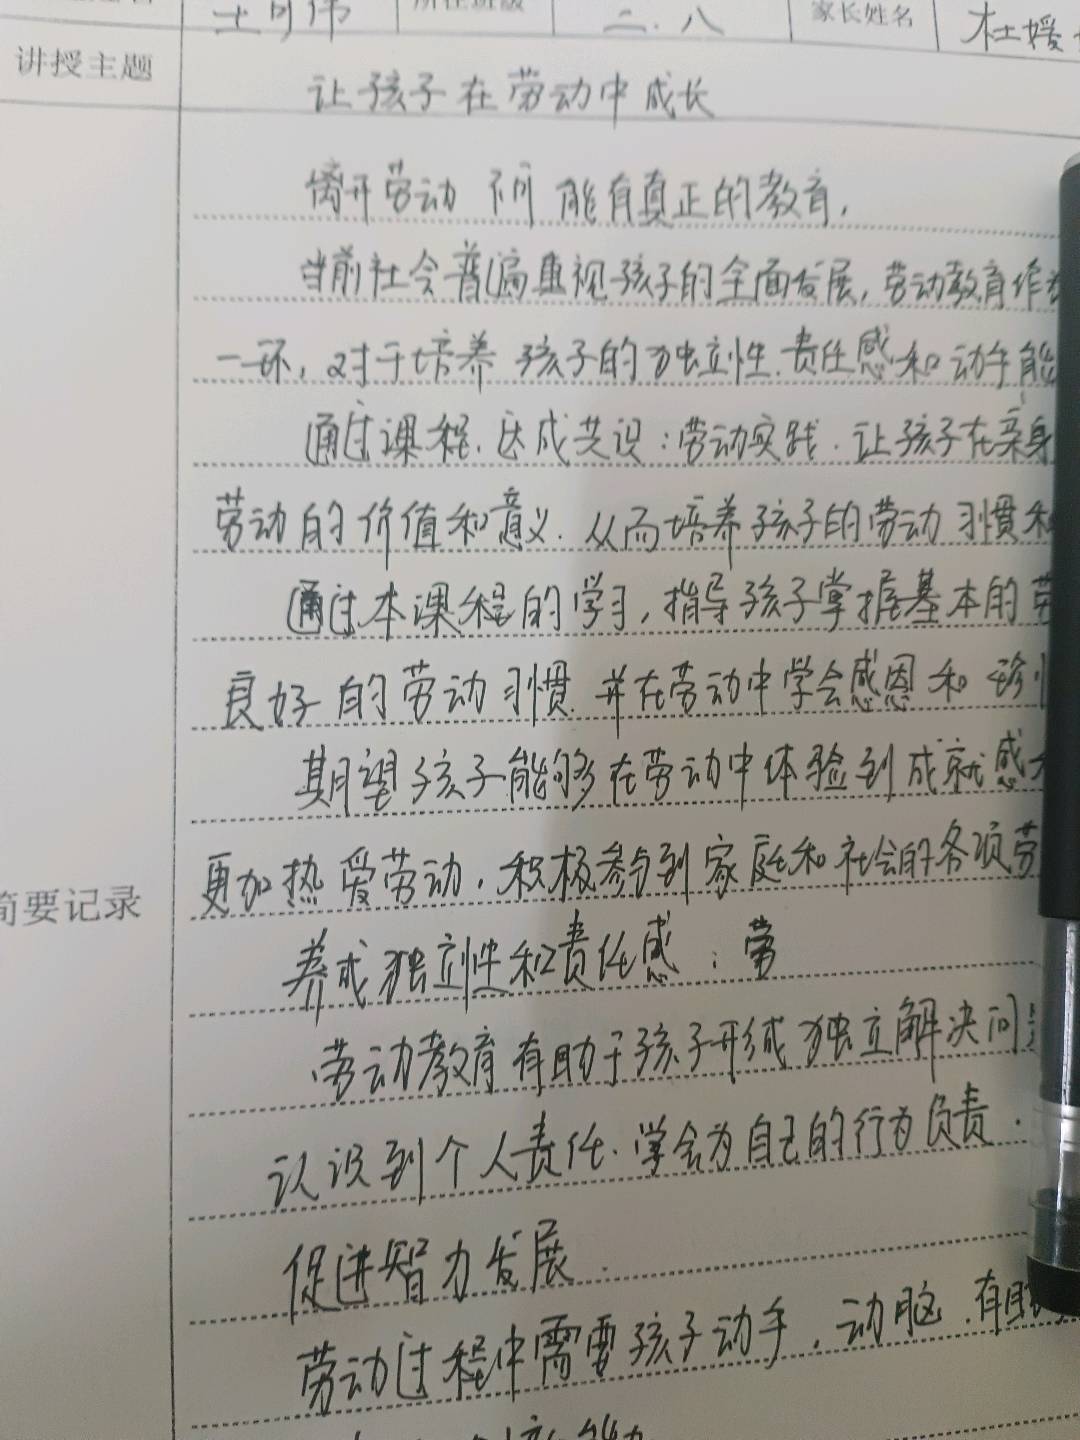 所在班级 二.八 家长姓名 杜媛
讲授主题 让孩子在劳动中成长
离开劳动 不可能有真正的教育,
当前社会普遍重视孩子的全面发展,劳动教育作为
一环,对于培养孩子的独立性.责任感和动手能
通过课程.达成共识:劳动实践.让孩子在亲身
劳动的价值和意义.从而培养孩子的劳动习惯和
通过本课程的学习,指导孩子掌握基本的劳
良好的劳动习惯.并在劳动中学会感恩和珍惜
期望孩子能够在劳动中体验到成就感
更加热爱劳动.积极参与到家庭和社会的各项劳
简要记录
养成独立性和责任感:
劳动教育有助于孩子形成独立解决问
认识到个人责任.学会为自己的行为负责.
促进智力发展.
劳动过程中需要孩子动手.动脑.有助